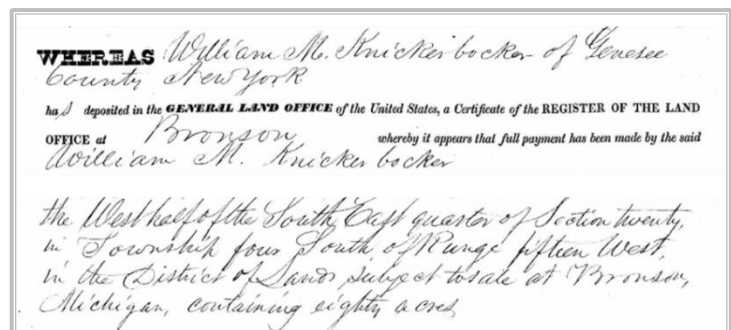 WHEREAS William M. Knickerbocker of Genesee
County New York
has deposited in the GENERAL LAND OFFICE of the United States, a Certificate of the REGISTER OF THE LAND
OFFICE at Bronson whereby it appears that full payment has been made by the said
William M. Knickerbocker
the West half of the South East quarter of Section twenty,
in Township four South of Range fifteen West,
in the District of Lands subject to sale at Bronson,
Michigan, containing eighty acres,